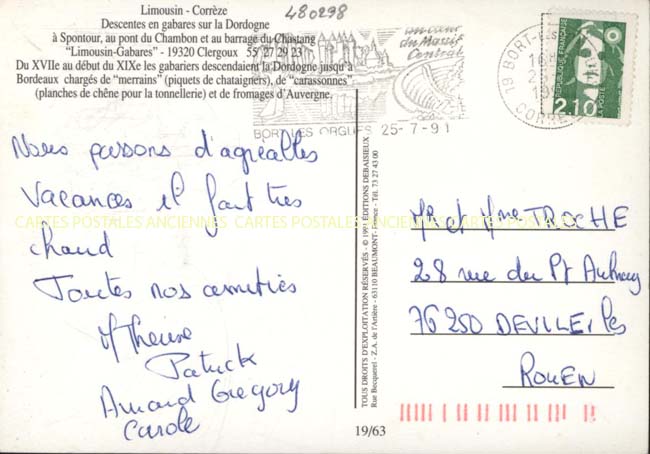 Limousin - Corrèze
Descentes en gabares sur la Dordogne
à Spontour, au pont du Chambon et au barrage du Chastang
"Limousin-Gabares" - 19320 Clergoux 55 27 29 23
Du XVIIe au début du XIXe les gabariers descendaient la Dordogne jusqu'à
Bordeaux chargés de "merrains" (piquets de chataigniers), de "carassonnes"
(planches de chêne pour la tonnellerie) et de fromages d'Auvergne.
480298
du Massif
Central
BORT LES ORGUES 25-7-91
19 BORT-LES
CORREZE
RÉPUBLIQUE FRANÇAISE
2,10
LA POSTE
Nous passons d'agréables
Vacances il fait très
chaud
Toutes nos amitiés
M Therese
Patrick
Arnaud Gregory
Carole
CARTES POSTALES ANCIENNES CARTES POSTALES ANCIENNES CARTES POSTALES ANCIENNES
TOUS DROITS D'EXPLOITATION RÉSERVÉS - © 1991 ÉDITIONS DEBAISIEUX
Rue Becquerel - Z.A. de l'Artière - 63110 BEAUMONT - France - Tél. 73 27 43 00
Mr et Mme TROCHE
28 rue du Pt
76250 DEVILLE les
ROUEN
19/63